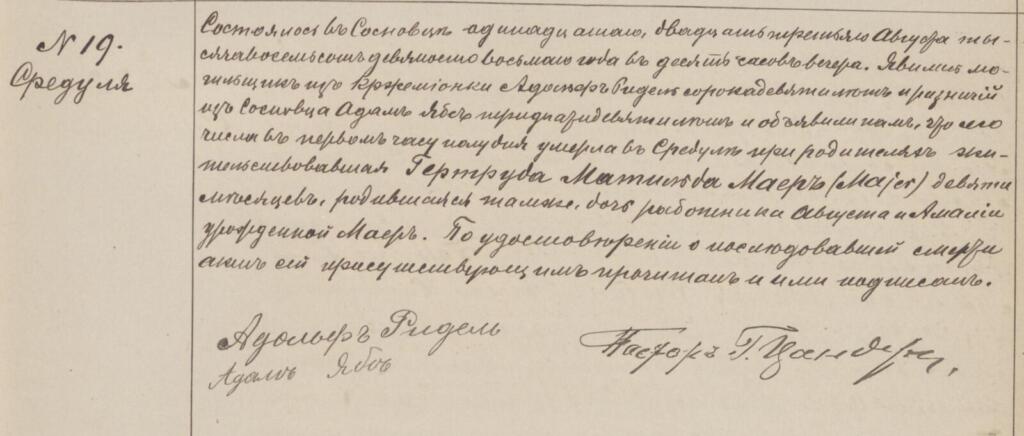 N 19.
Средуля
Состоялось въ Сосновцѣ одинадцатаго, двадцать третьяго Августа ты-
сяча восемьсотъ девяносто восьмаго года въ десять часовъ вечера. Явились мо-
гильщикъ изъ Адольфъ Ридель сорока девяти лѣтъ и
изъ Сосновца Адамъ Ябсъ тридцати девяти лѣтъ и объявили намъ, что сего
числа въ первомъ часу полудня умерла въ Средулѣ при родителяхъ жи-
тельствовавшая Гертруда Матильда Маеръ (Majer) девяти
мѣсяцевъ, родившаяся тамже, дочь работника Августа и Амаліи
урожденной Маеръ. По удостовѣреніи о послѣдовавшей смерти
актъ сей присутствующимъ прочитанъ и ими подписанъ.
Адольфъ Ридель
Адамъ Ябсъ
Пасторъ Г. Цандеръ,